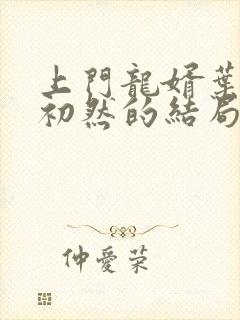 上門龍婿葉
初然的結局
仲愛荣